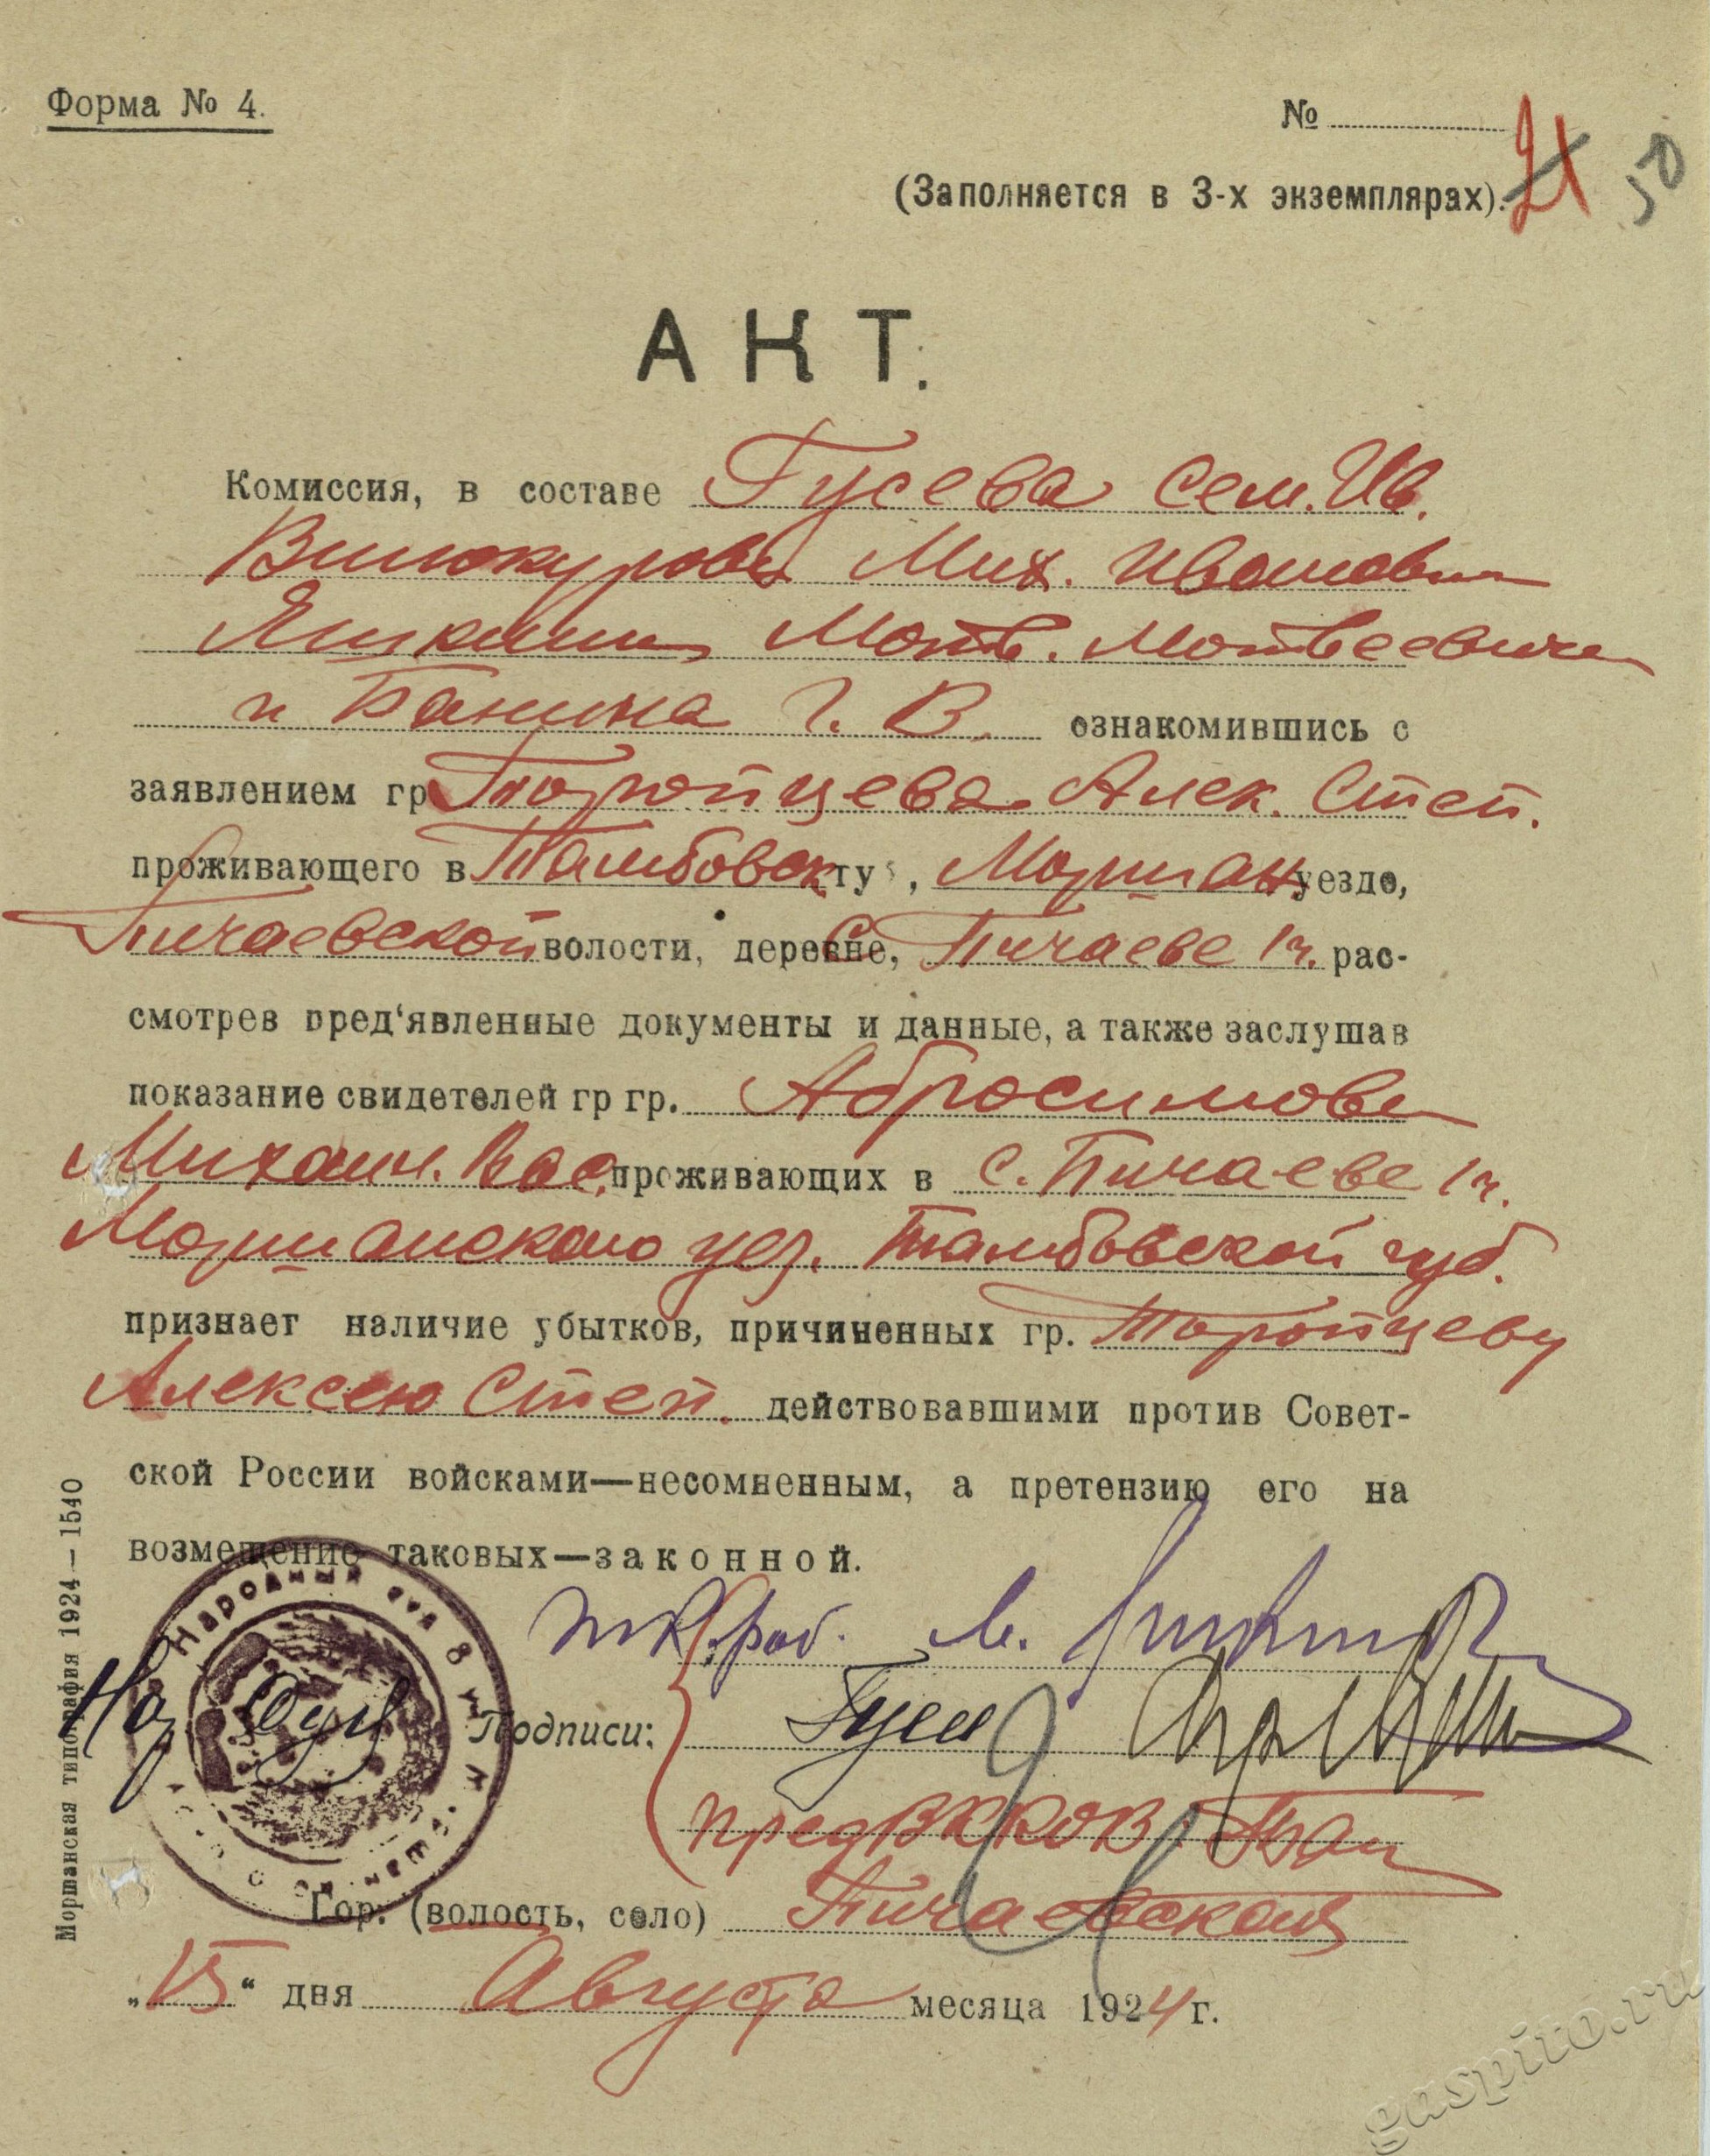 Форма № 4.
№
21 50
(Заполняется в 3-х экземплярах).
АКТ.
Комиссия, в составе Гусева Сем. Ив.
Винокурова Мих. Ивановича
Яшкина Матв. Матвеевича
и Банина Г. В. ознакомившись с
заявлением гр Торопцева Алек. Степ.
проживающего в Тамбовск гу , Моршан уезде,
Пичаевской волости, деревне, С Пичаеве 1ч. рас-
смотрев пред‘явленные документы и данные, а также заслушав
показание свидетелей гр гр. Абросимова
Михаил. Вас. проживающих в с. Пичаеве 1ч.
Моршанского уез. Тамбовской губ.
признает наличие убытков, причиненных гр. Торопцеву
Алексею Степ. действовавшими против Совет-
ской России войсками—несомненным, а претензию его на
возмещение таковых—законной.
Народный суд 8
М.
Подписи: Гусев
пред ВККОВ Бан
Гор. (волость, село) Пичаевская
„15“ дня Августа месяца 1924 г.
Моршанская типография 1924—1540
gaspito.ru